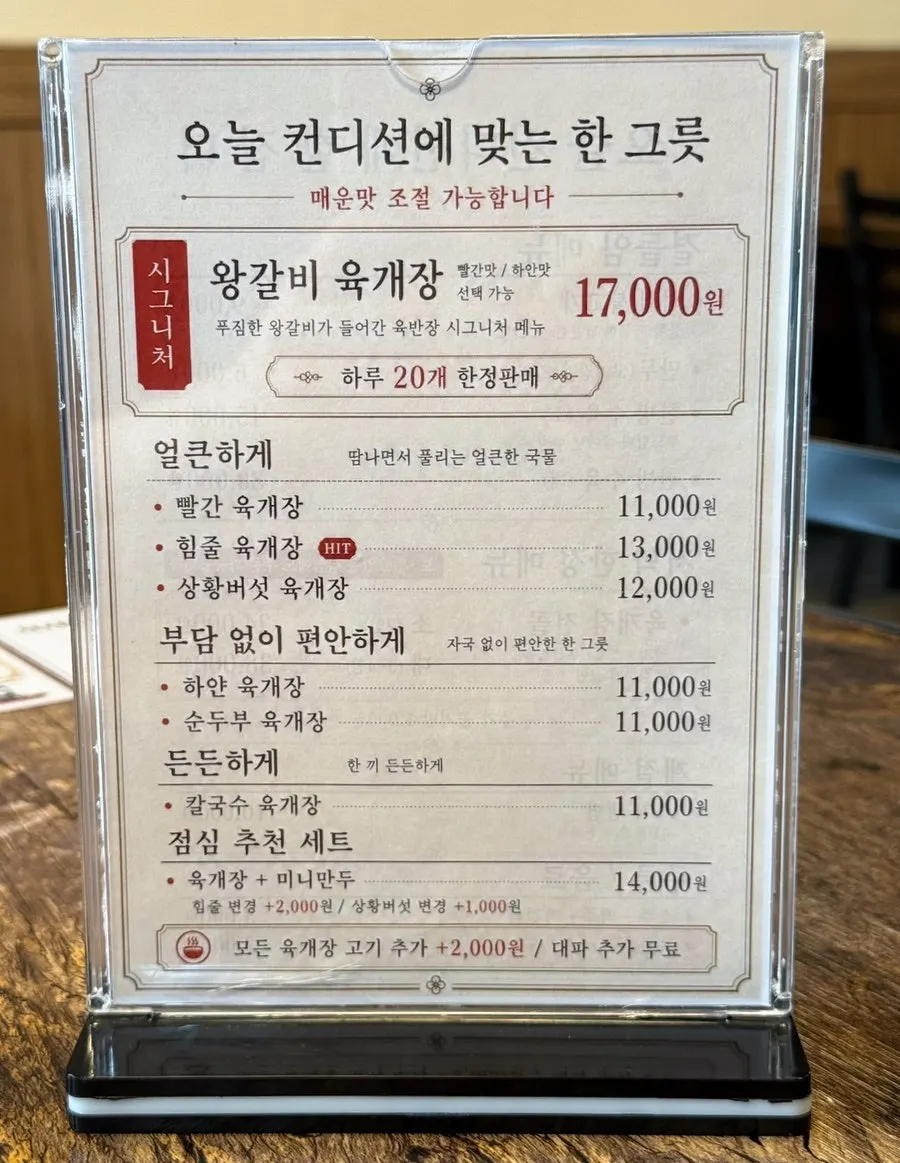 오늘 컨디션에 맞는 한 그릇
매운맛 조절 가능합니다
시그니처
왕갈비 육개장 빨간맛 / 하얀맛 선택 가능 17,000원
푸짐한 왕갈비가 들어간 육반장 시그니처 메뉴
하루 20개 한정판매
얼큰하게 땀나면서 풀리는 얼큰한 국물
• 빨간 육개장 11,000원
• 힘줄 육개장 HIT 13,000원
• 상황버섯 육개장 12,000원
부담 없이 편안하게 자국 없이 편안한 한 그릇
• 하얀 육개장 11,000원
• 순두부 육개장 11,000원
든든하게 한 끼 든든하게
• 칼국수 육개장 11,000원
점심 추천 세트
• 육개장 + 미니만두 14,000원
힘줄 변경 +2,000원 / 상황버섯 변경 +1,000원
모든 육개장 고기 추가 +2,000원 / 대파 추가 무료